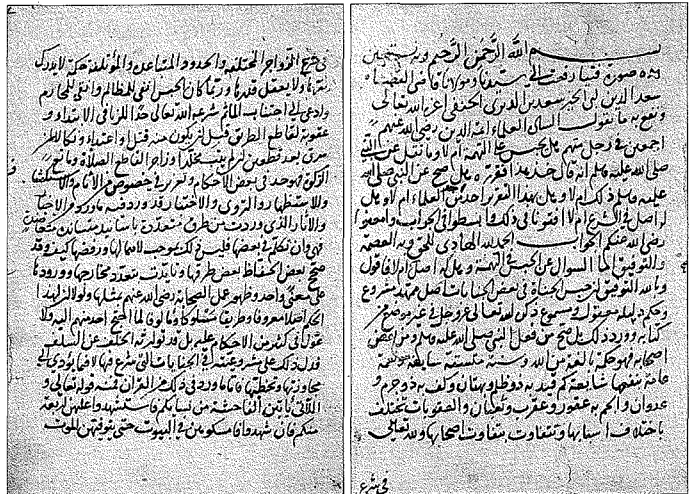 بسم الله الرحمن الرحيم وبه نستعين
هذه صورة فتيا رفعت الى سيدنا ومولانا قاضي القضاة
سعد الدين الخير سعد بن الديري الحنفي اعزه الله تعالى
ونفع به ما تقول السادة العلماء ائمة الدين رضي الله عنهم
اجمعين في رجل متهم هل يحبس على التهمة ام لا وما نقل عن النبي
صلى الله عليه وسلم انه قال هل صح عن النبي صلى الله
عليه وسلم ذلك ام لا وهل بهذا التقرير احد من العلماء ام لا وهل
له اصل في الشرع ام لا افتونا في ذلك وابسطوا في الجواب وامعنوا
رضي الله عنكم الجواب الحمد لله الهادي للحق وبه العصمة
والتوفيق اما السؤال عن الحبس في التهمة وهل له اصل ام لا فاقول
وبالله التوفيق ان حبس الجناة في بعض الجنايات اصل ممهد مشروع
وحكم دليله معقول ومسموع ذكر الله تعالى عز وجل في غير موضع من
كتابه وورد ذلك بل صح من فعل النبي صلى الله عليه وسلم ومن بعض
اصحابه فهو حكمة بالغة من الله وسنة متسقة سابغة ونعمة
عامة بنفعها شائعة كم قيد به ذو ظلم وبهتان وكف به ذو جرم و
عدوان والجم به عقور وعقرب وثعبان والعقوبات تختلف
باختلاف اسبابها وتتفاوت بتفاوت اصحابها ولله تعالى
في شرع
في شرع الزواجر المختلفة والحدود المتباعدة والمؤتلفة حكمة لا يدرك
ولا يعقل قدرها وربما كان الحبس انفى للمظالم وانفى للمحارم
وادعى الى اجتناب المآثم شرعه الله تعالى حدا للزنا في الابتداء و
عقوبة لقاطع الطريق قبل ان يكون منه قتل او اعتداء ونكالا لمن
سرق بعد قطعين
فهو حد في بعض الاحكام وتعزير في خصوص من الانام
والاستظهار والتروي والاختبار وقد ورد فيه ما ورد من الاخبار
والاثار الذي وردت من طرق متعددة باسانيد متساندة
فهي وان تكلم في بعضها فليس في ذلك موجب لاهمالها ورفضها كيف وقد
صحح بعض الحفاظ بعض طرقها وتايدت بتعدد مخارجها وورودها
على معنى واحد وظهور عمل الصحابة رضي الله عنهم بمثلها ولولا ان لهذا
الحكم اصلا معروفا وطريقا مسلوكا ومالوفا لما احد منهم اليه ولا
عول في كثير من الاحكام عليه بل قد توارثه الخلف عن السلف
فدل ذلك على شروعيته في الجنايات التي شرع فيها لا فيما يؤدي الى
مجاوزتها وتخطيها فما ورد في ذلك من القران فمنه قوله تعالى و
اللاتي ياتين الفاحشة من نسائكم فاستشهدوا عليهن اربعة
منكم فان شهدوا فامسكوهن في البيوت حتى يتوفهن الموت